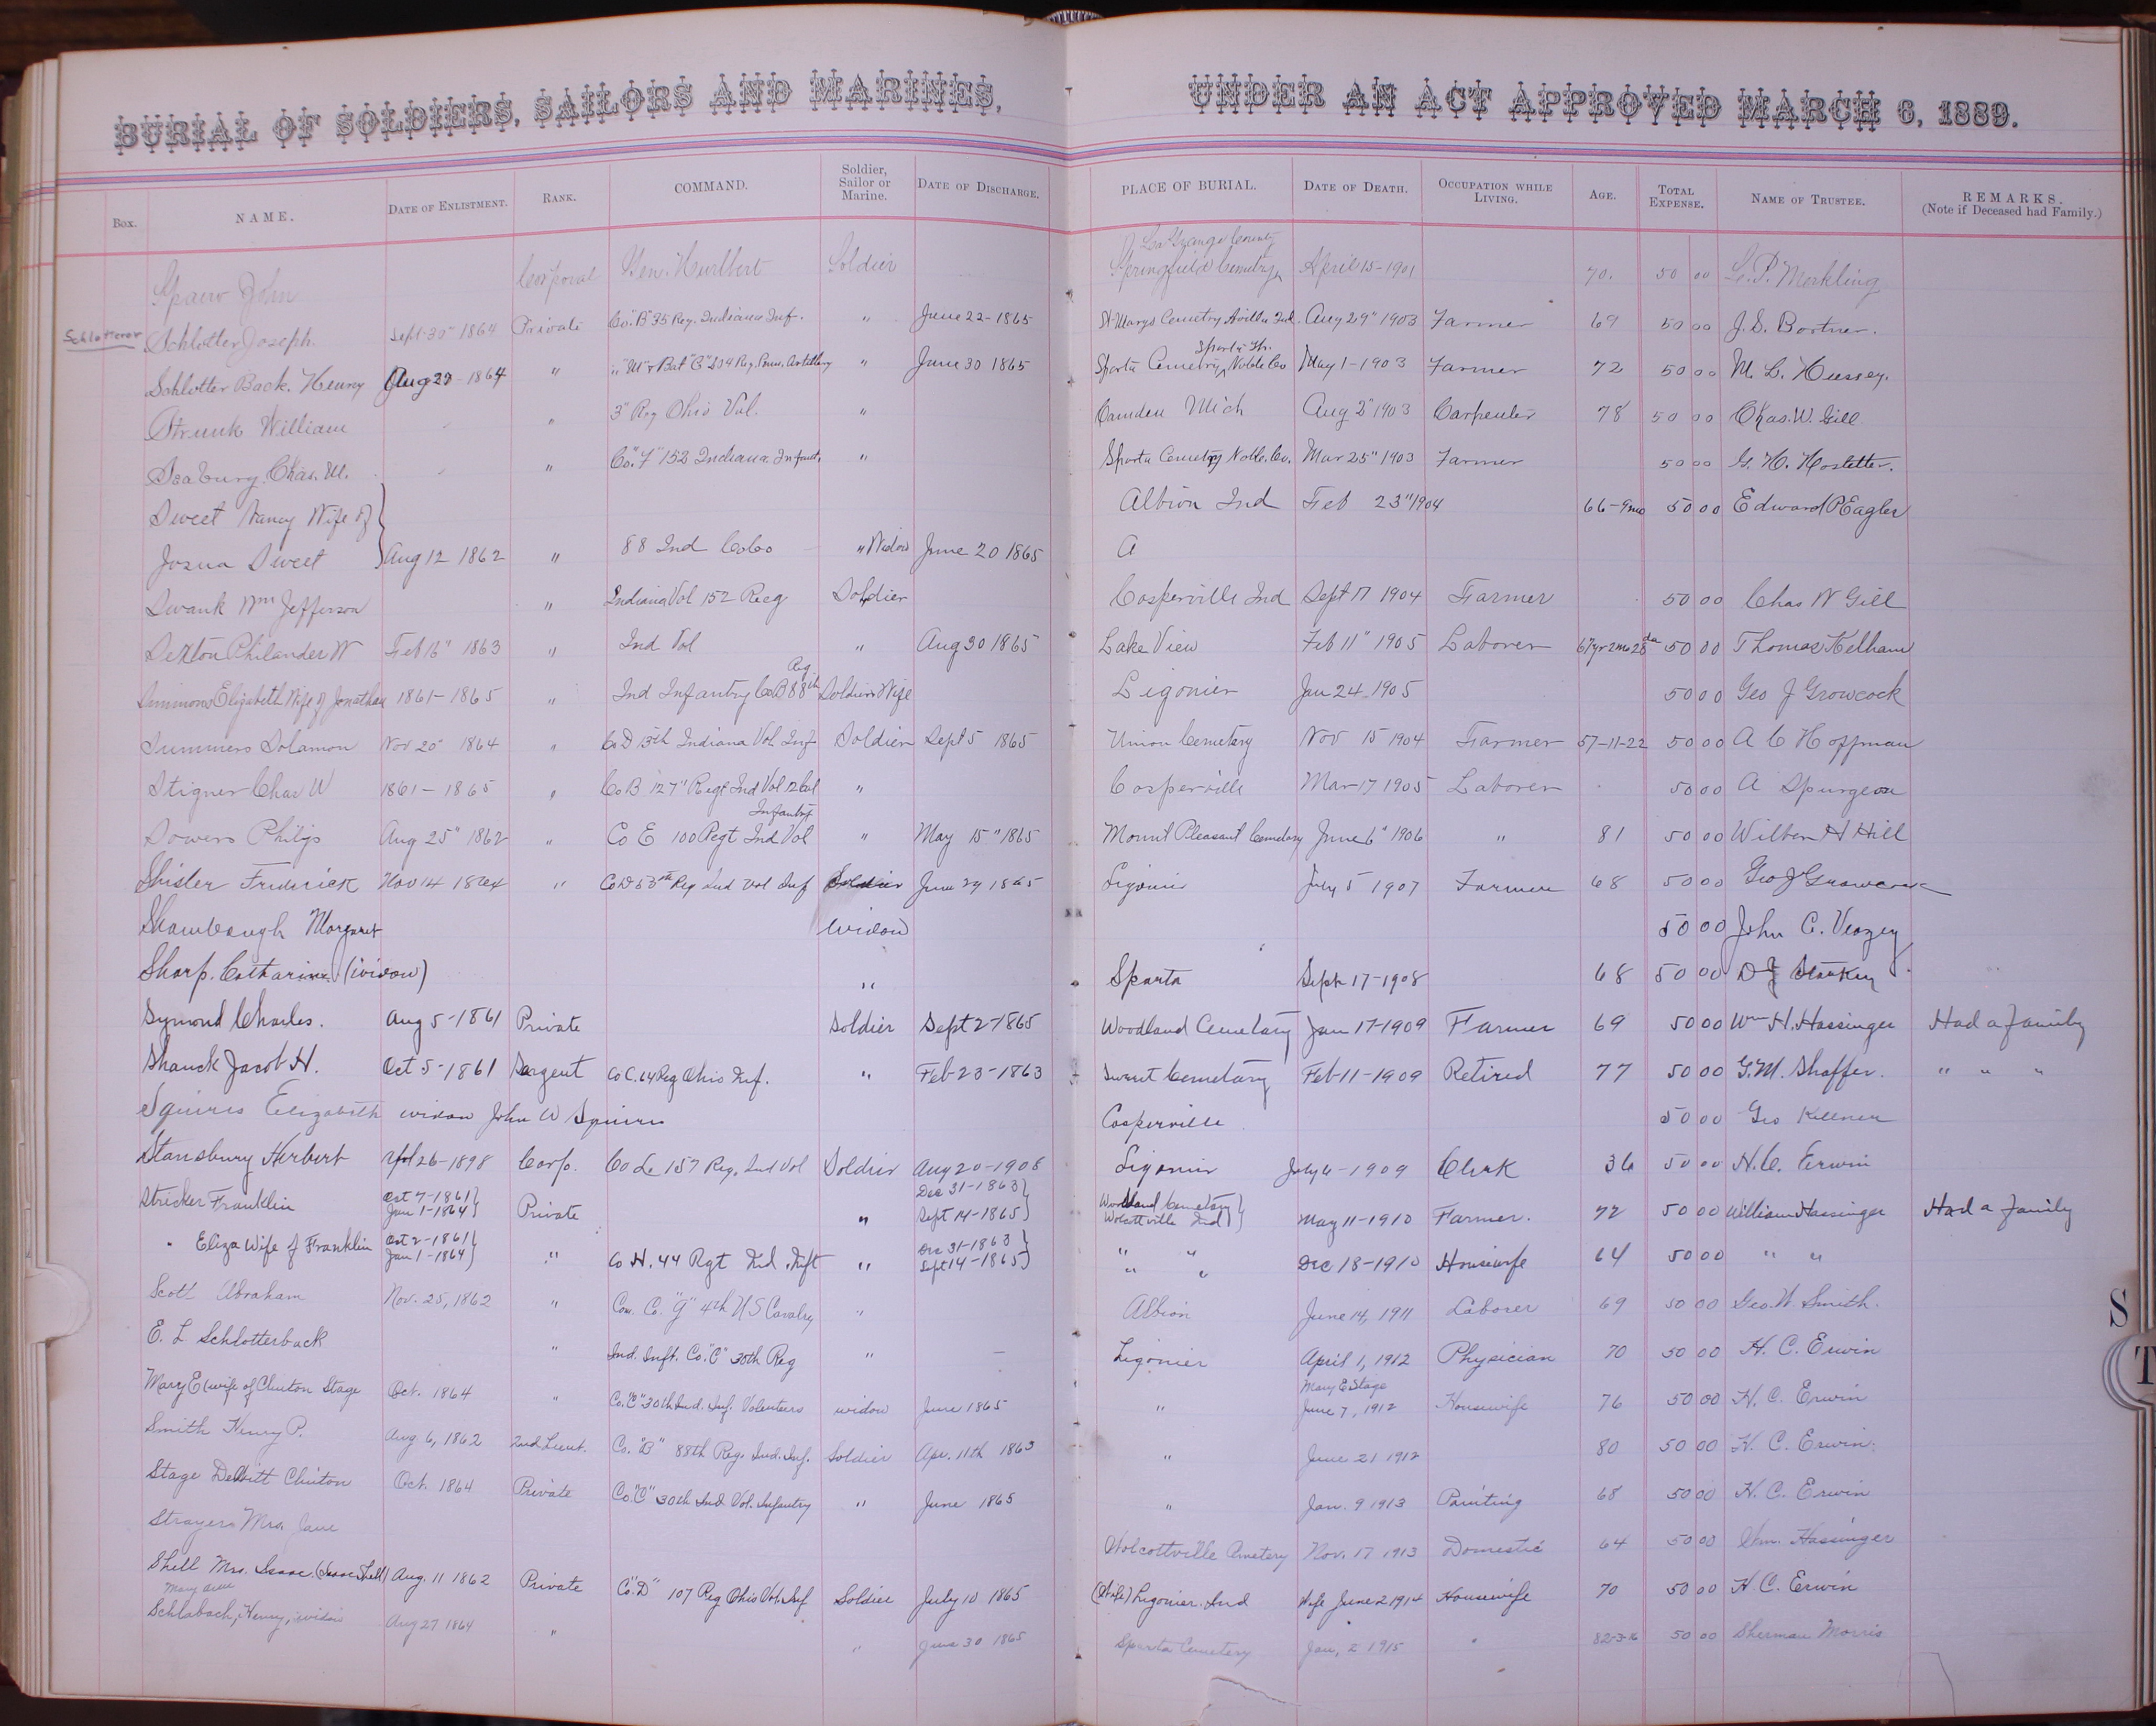 BURIAL OF SOLDIERS, SAILORS AND MARINES, UNDER AN ACT APPROVED MARCH 6, 1889.
Box. NAME. DATE OF ENLISTMENT. RANK. COMMAND. Soldier, Sailor or Marine. DATE OF DISCHARGE. PLACE OF BURIAL. DATE OF DEATH. OCCUPATION WHILE LIVING. AGE. TOTAL EXPENSE. NAME OF TRUSTEE. REMARKS. (Note if Deceased had Family.)
John Corporal Gen. Hurlbert Soldier Springfield Cemetery LaGrange County April 15-1901 70. 50 00 Merkling
Schlotterer Schlotter Joseph. Sept. 30" 1864 Private Co. "B" 35 Reg. Indiana Inf. " June 22-1865 St Marys Cemetery Avilla Ind. Aug 29" 1903 Farmer 69 50 00 J. S. Bortner.
Schlotter Back. Henry Aug 27-1864 " " "M" & Bat "C" 204 Reg. Penn. Artillery " June 30 1865 Sparta Cemetery, Sparta Th. Noble Co May 1-1903 Farmer 72 50 00 M. L. Hussey.
Strunk William " 3" Reg Ohio Vol. " Camden Mich Aug 2" 1903 Carpenter 78 50 00 Chas. W. Gill
Seabury. Chas. M. " Co. "F" 152 Indiana. Infant. " Sparta Cemetery Noble. Co. Mar 25" 1903 Farmer 50 00 G. H. Hostetter.
Sweet Nancy Wife of } Albion Ind Feb 23" 1904 66-9mo 50 00 Edward P Eagles
Josua Sweet Aug 12 1862 " 88 Ind Co " Widow June 20 1865 A
Swank Wm Jefferson " Indiana Vol 152 Reg Soldier Cosperville Ind Sept 17 1904 Farmer 50 00 Chas W Gill
Sexton Philander W Feb 16" 1863 " Ind Vol " Aug 30 1865 Lake View Feb 11" 1905 Laborer 67yr 2mo 28da 50 00 Thomas Kelham
Simmons Elizabeth Wife of Jonathan 1861-1865 " Ind Infantry Co B 88th Reg Soldiers Wife Ligonier Jan 24 1905 50 00 Geo J Growcock
Summers Solamon Nov 20" 1864 " Co D 13th Indiana Vol Inf Soldier Sept 5 1865 Union Cemetery Nov 15 1904 Farmer 57-11-22 50 00 A C Hoffman
Stigner Chas W 1861-1865 " Co B 127" Regt Ind Vol 12 Cal " Cosperville Mar-17 1905 Laborer 50 00 A Spurgeon
Sowers Philip Aug 25" 1862 " Co E 100 Regt Ind Vol Infantry " May 15" 1865 Mount Pleasant Cemetary June 6" 1906 " 81 50 00 Wilber H Hill
Shisler Frederick Nov 14 1864 " Co D 53rd Reg Ind Vol Inf Soldier June 29 1865 Ligonier July 5 1907 Farmer 68 50 00 Geo J Growcock
Shambaugh Margaret Widow 50 00 John C. Veazey
Sharp. Catharine (widow) " Sparta Sept 17-1908 68 50 00 D J Starkey
Symond Charles. Aug 5-1861 Private Soldier Sept 27-1865 Woodland Cemetary Jan 17-1909 Farmer 69 50 00 Wm H. Hassinger Had a family
Shauck Jacob H. Oct 5-1861 Sargent Co C. 64 Reg Ohio Inf. " Feb-23-1863 Sweet Cemetary Feb-11-1909 Retired 77 50 00 G. M. Shaffer. " " "
Squires Elizabeth widow John W Squires Cosperville 50 00 Geo Kellner
Stansbury Herbert Apl 26-1898 Corp. Co L. 157 Reg. Ind Vol Soldier Aug 20-1908 Ligonier July 6-1909 Clerk 36 50 00 H. C. Erwin
Stricker Franklin Oct 7-1861 } Jan 1-1864 } Private " Dec 31-1863 } Sept 14-1865 } Woodland Cemetary Wolcottville Ind } May 11-1910 Farmer. 72 50 00 William Hassinger Had a family
" Eliza Wife of Franklin Oct 2-1861 } Jan 1-1864 } " Co H. 44 Rgt Ind. Inft " Dec 31-1863 } Sept 14-1865 } " " " " Dec 18-1910 Housewife 64 50 00 " "
Scott Abraham Nov. 25, 1862 " Com. Co. "G" 4th U S Cavalry " Albion June 14, 1911 Laborer 69 50 00 Geo. W. Smith.
E. L Schlotterback " Ind. Inft. Co. "C" 30th Reg " — Ligonier April 1, 1912 Physician 70 50 00 H. C. Erwin
Mary E (wife of Clinton Stage Oct. 1864 " Co. "C" 30th Ind. Inf. Volenteers widow June 1865 " Mary E Stage June 7, 1912 Housewife 76 50 00 H. C. Erwin
Smith Henry P. Aug 6, 1862 2nd Lieut. Co. "B" 88th Reg. Ind. Inf. Soldier Apr. 11th 1863 " June 21 1912 80 50 00 H. C. Erwin.
Stage DeWitt Clinton Oct. 1864 Private Co. "C" 30th Ind. Vol. Infantry " June 1865 " Jan. 9 1913 Painting 68 50 00 H. C. Erwin
Strayer Mrs. Jane Wolcottville Cemetery Nov. 17 1913 Domestic 64 50 00 Wm. Hassinger
Shell Mrs. Isaac. (Isaac Shell) Aug. 11 1862 Private Co. "D" 107 Reg Ohio Vol. Inf Soldier July 10 1865 (Wife) Ligonier. Ind Wife June 2 1914 Housewife 70 50 00 H. C. Erwin
Schlabach, Mary Henry, widow Aug 27 1864 " " June 30 1865 Sparta Cemetery Jan, 2 1915 " 82-3-16 50 00 Sherman Morris
S
T